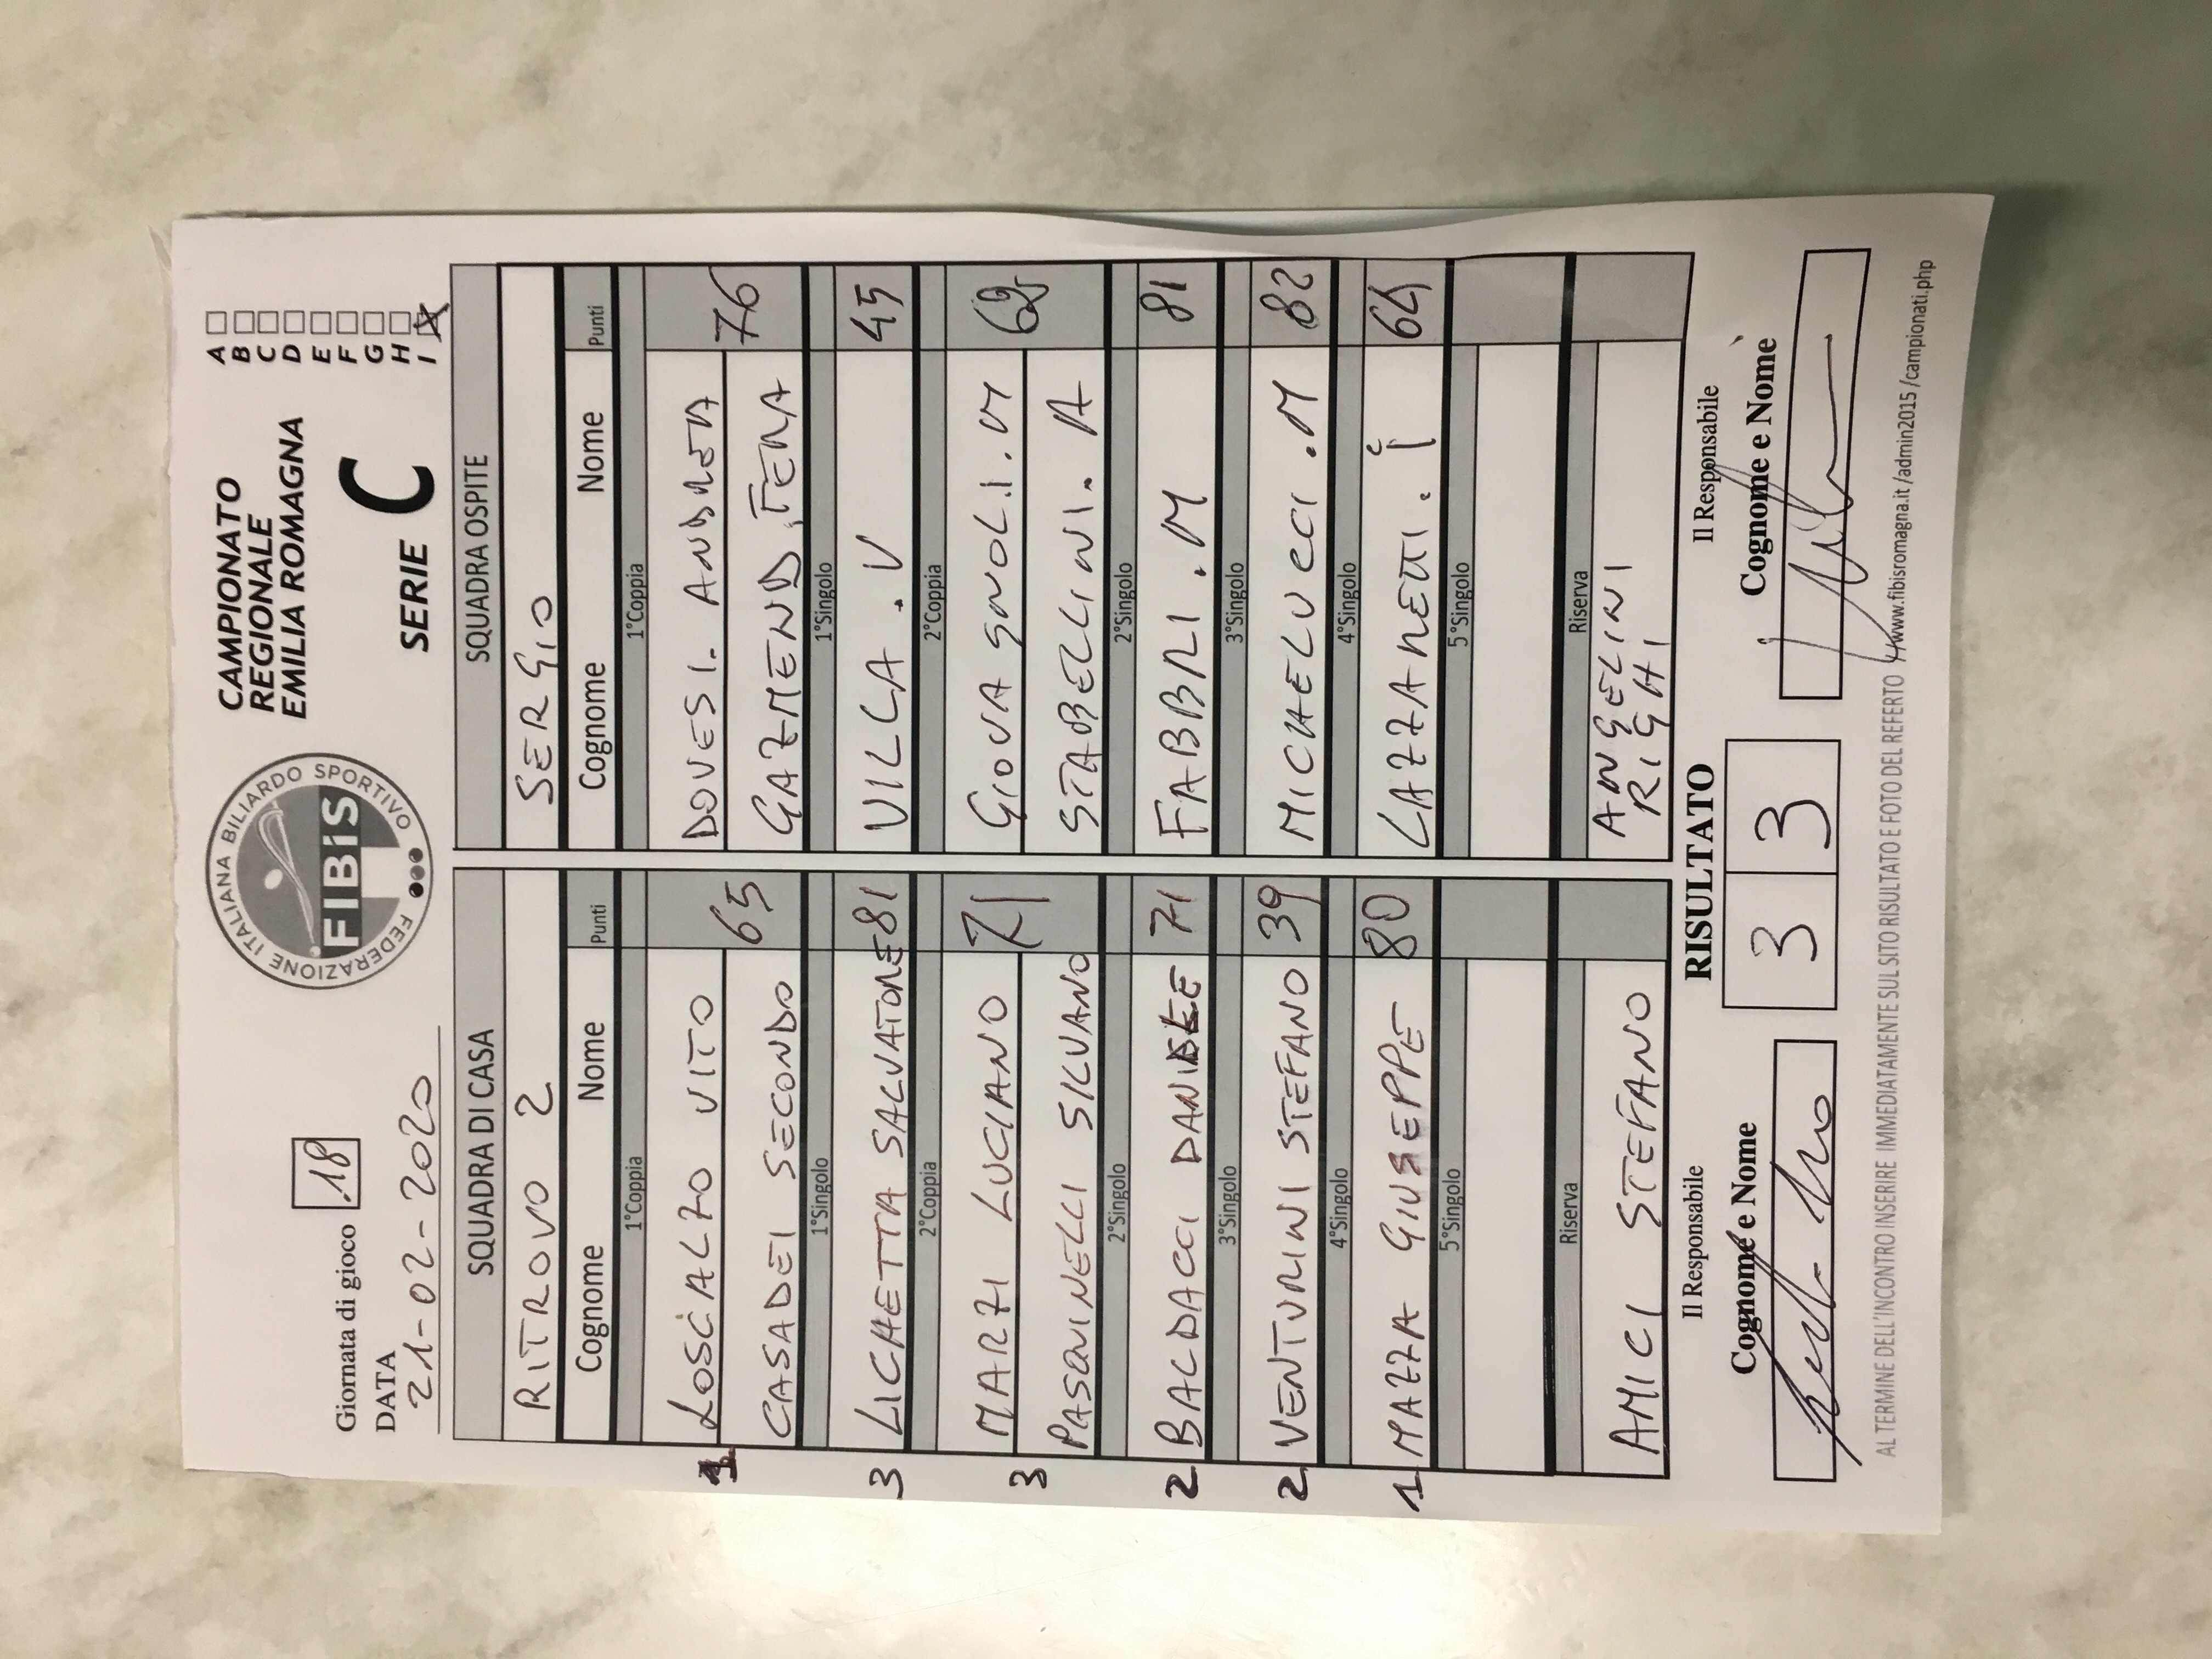 Giornata di gioco 18
DATA
21-02-2020
FEDERAZIONE ITALIANA BILIARDO SPORTIVO
FIBiS
CAMPIONATO
REGIONALE
EMILIA ROMAGNA
SERIE C
A
B
C
D
E
F
G
H
I X
SQUADRA DI CASA
RITROVO 2
Cognome Nome Punti
1°Coppia
1 LOSCIALZO VITO
CASADEI SECONDO 65
1°Singolo
3 LICHETTA SALVATORE 81
2°Coppia
3 MARZI LUCIANO 71
PASQUINELLI SILVANO
2°Singolo
2 BALDACCI DANIELE 71
3°Singolo
2 VENTURINI STEFANO 39
4°Singolo
1 MAZZA GIUSEPPE 80
5°Singolo
Riserva
AMICI STEFANO
SQUADRA OSPITE
SERGIO
Cognome Nome Punti
1°Coppia
DOVESI. ANDREA
GAZMEND FERA 76
1°Singolo
VILLA . V 45
2°Coppia
GIOVAGNOLI . M
STABELLINI . A
2°Singolo
FABBRI . M 81
3°Singolo
MICHELUCCI . M 82
4°Singolo
LAZZARETTI . i 64
5°Singolo
Riserva
ANGELINI
RIGHI
Il Responsabile
Cognome e Nome
RISULTATO
3 3
Il Responsabile
Cognome e Nome
AL TERMINE DELL'INCONTRO INSERIRE IMMEDIATAMENTE SUL SITO RISULTATO E FOTO DEL REFERTO www.fibisromagna.it /admin2015 /campionati.php